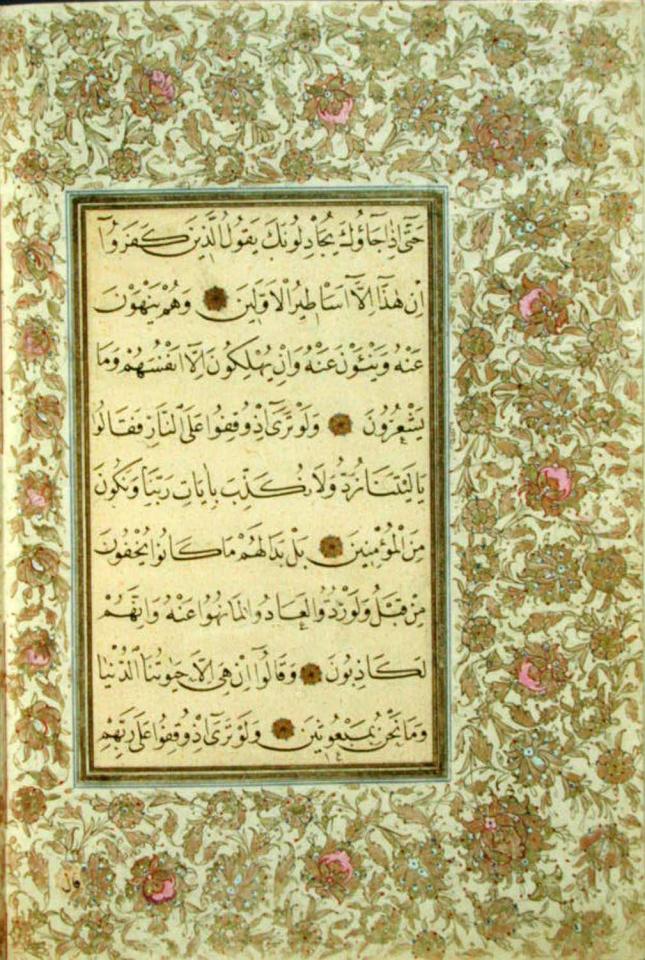 حَتّٰى اِذَا جَاؤُكَ يُجَادِلُونَكَ يَقُولُ الَّذِينَ كَفَرُوا
اِنْ هٰذَا اِلَّا اَسَاطِيرُ الْاَوَّلِينَ وَهُمْ يَنْهَوْنَ
عَنْهُ وَيَنْئَوْنَ عَنْهُ وَاِنْ يُهْلِكُونَ اِلَّا اَنْفُسَهُمْ وَمَا
يَشْعُرُونَ وَلَوْ تَرٰى اِذْ وُقِفُوا عَلَى النَّارِ فَقَالُوا
يَا لَيْتَنَا نُرَدُّ وَلَا نُكَذِّبَ بِاٰيَاتِ رَبِّنَا وَنَكُونَ
مِنَ الْمُؤْمِنِينَ بَلْ بَدَا لَهُمْ مَا كَانُوا يُخْفُونَ
مِنْ قَبْلُ وَلَوْ رُدُّوا لَعَادُوا لِمَا نُهُوا عَنْهُ وَاِنَّهُمْ
لَكَاذِبُونَ وَقَالُوا اِنْ هِيَ اِلَّا حَيٰوتُنَا الدُّنْيَا
وَمَا نَحْنُ بِمَبْعُوثِينَ وَلَوْ تَرٰى اِذْ وُقِفُوا عَلٰى رَبِّهِمْ
قال